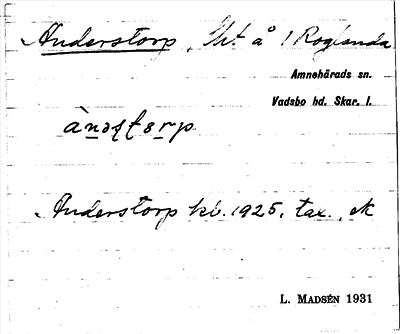 Anderstorp, lht. å 1 Roglanda
Amnehärads sn.
Vadsbo hd. Skar. l.
Anderstorp kb. 1925, tax., ek
L. MADSÉN 1931